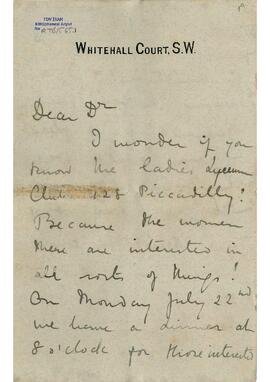 TOPIWALA
WHITEHALL COURT, S.W.
Dear Dr
I wonder if you
know the ladies Lyceum
Club 128 Piccadilly!
Because the women
there are interested in
all sorts of things!
On Monday July 22nd
we have a dinner at
8 o'clock for those interested